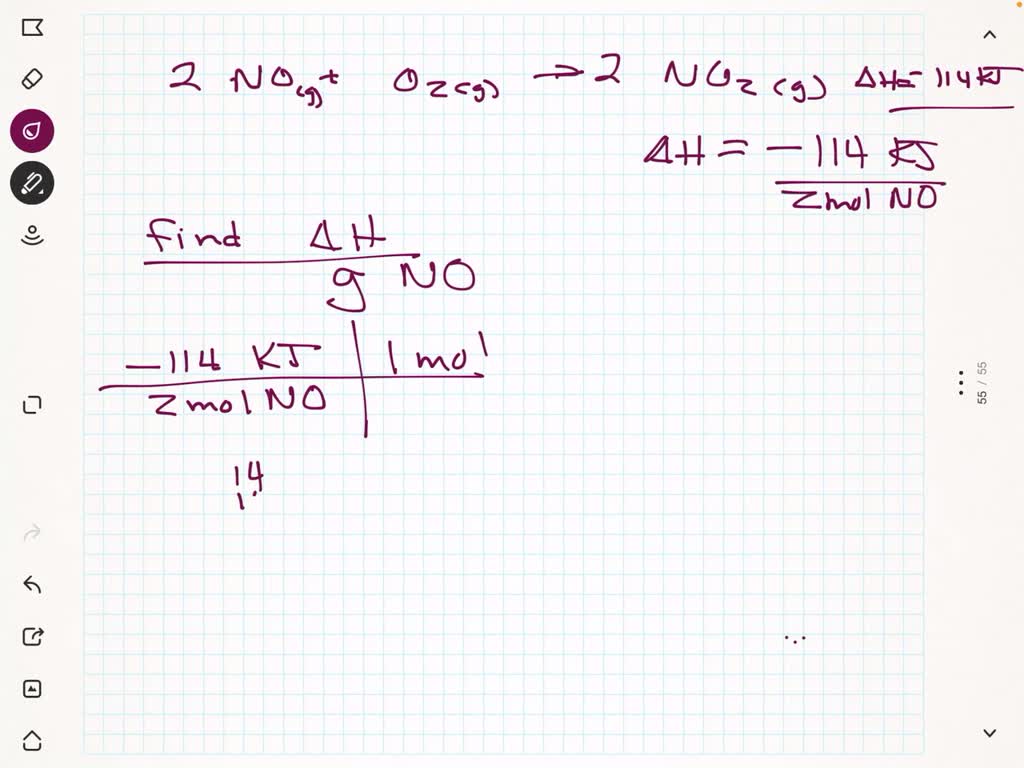 2 NO(g) + O2(g) → 2 NO2(g) ΔH=-114 KJ
ΔH = -114 KJ
2 mol NO
find ΔH
g NO
-114 KJ 1 mol
2 mol NO
14
1
55 / 55